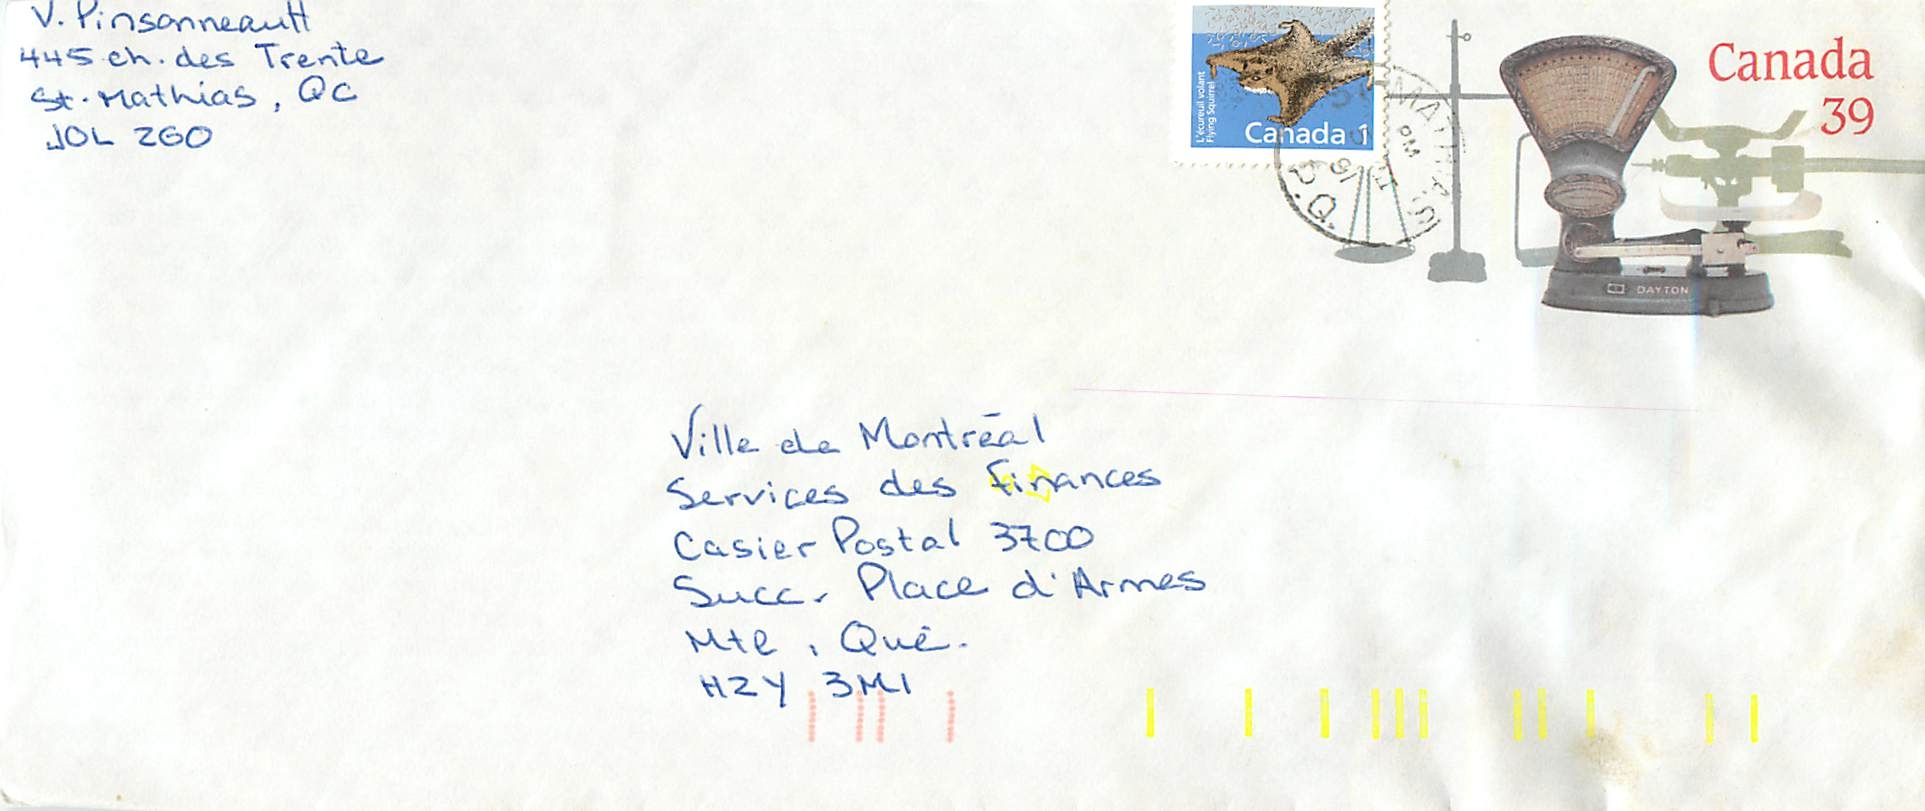 V. Pinsonneault
445 ch. des Trente
St-Mathias, QC
J0L 2G0
L'écureuil volant
Flying Squirrel
Canada 1
MATHIAS
PM
91
P.Q.
Canada
39
DAYTON
Ville de Montréal
Services des Finances
Casier Postal 3700
Succ. Place d'Armes
Mtl, Qué.
H2Y 3M1